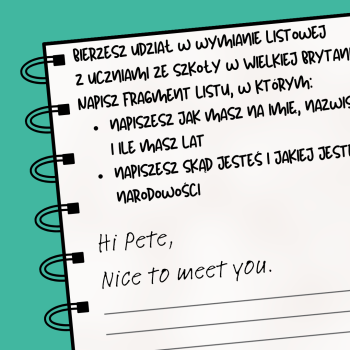 BIERZESZ UDZIAŁ W WYMIANIE LISTOWEJ
Z UCZNIAMI ZE SZKOŁY W WIELKIEJ
NAPISZ FRAGMENT LISTU, W KTÓRYM:
• NAPISZESZ JAK MASZ NA IMIĘ,
I ILE MASZ LAT
• NAPISZESZ SKĄD JESTEŚ I JAKIEJ
NARODOWOŚCI
Hi Pete,
Nice to meet you.